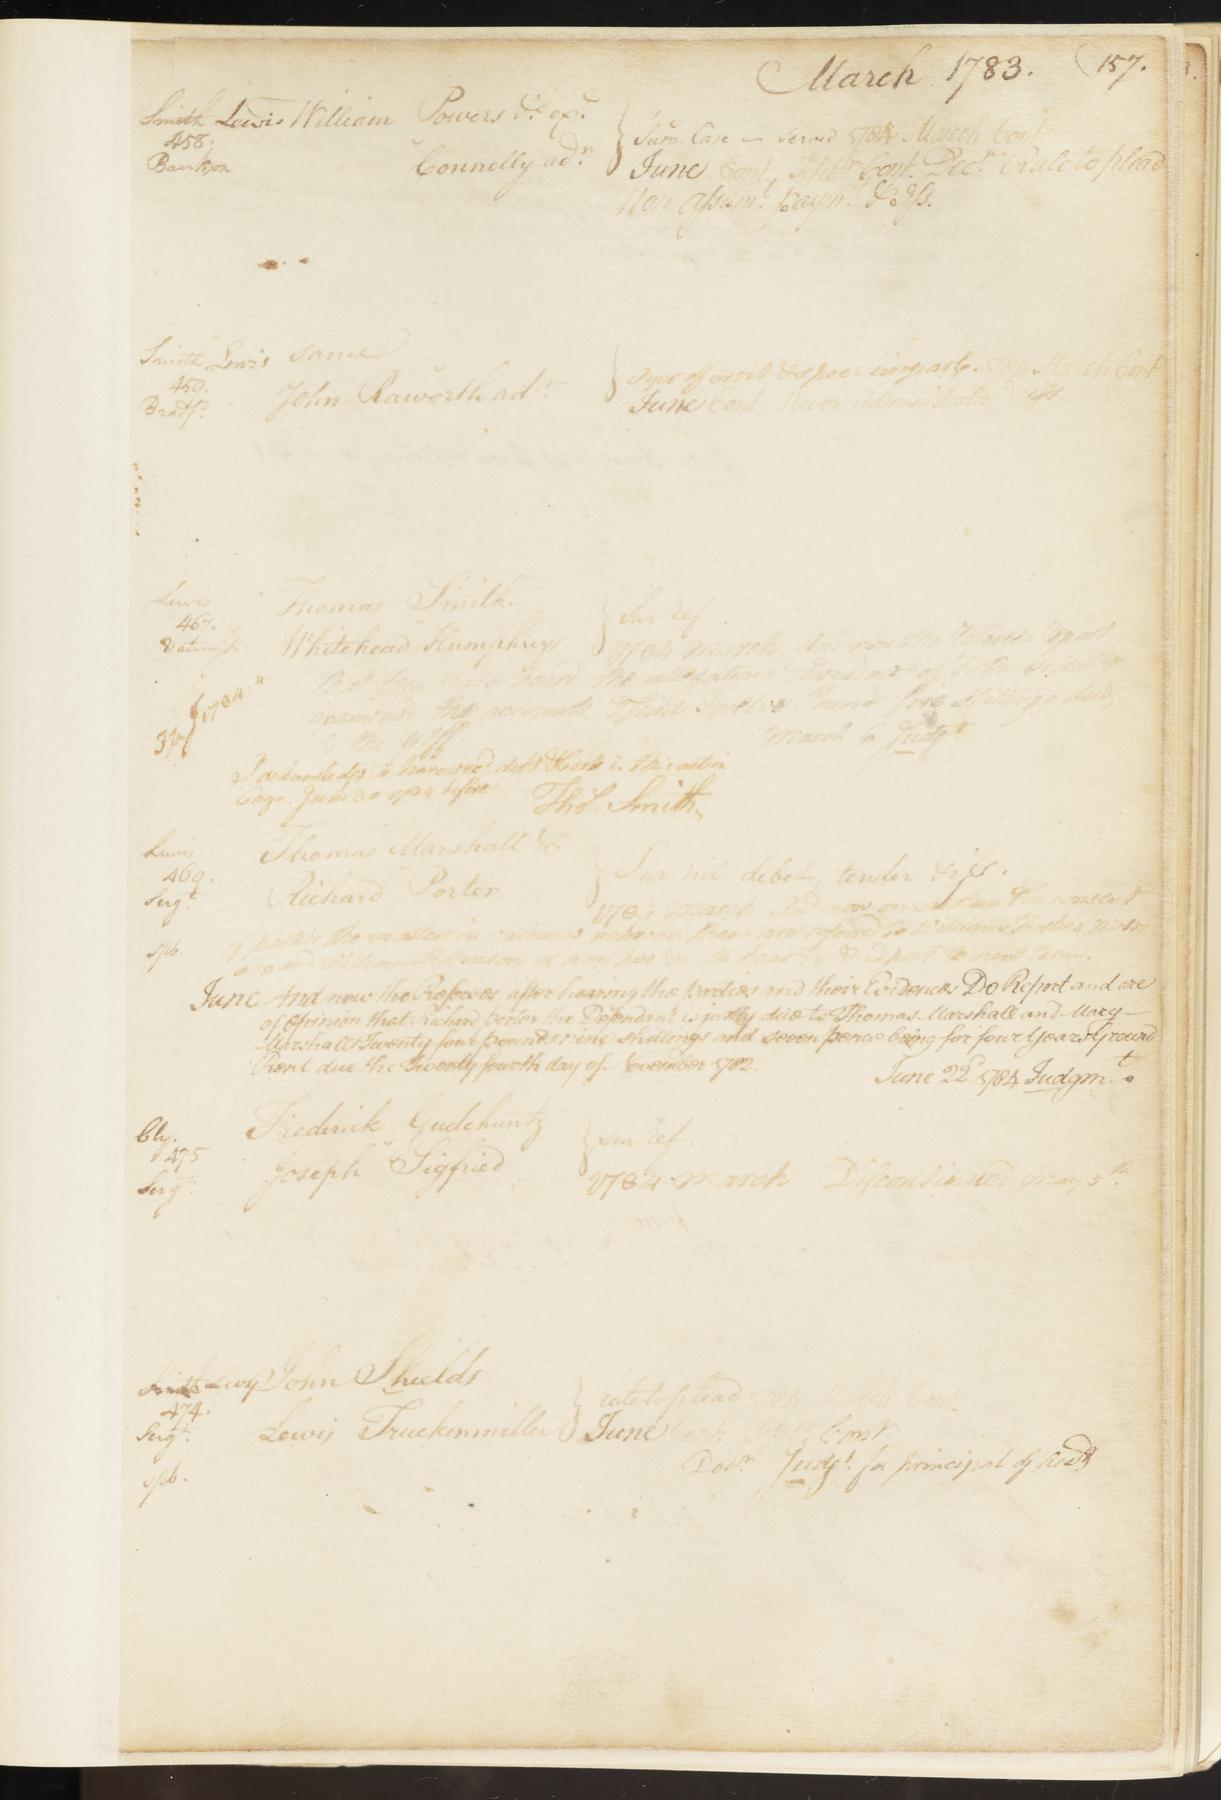 March 1783. (157.
Smith Lewis William Powers &c. exr.
458.
Bankson Connelly adr.
Sum. Case — served 1784 March Cont
June Cont, Septr. Cont. Decr. rule to plead
Non Assumt. paymt. & Iss.
Smith Lewis same
459.
Bradfd. John Raworth adr.
Oyer of writ & spec: imparl. 1784 March Cont
June Cont. Never Administrator iss
Lewis Thomas Smith
467.
Whitehead Humphreys
Sur ref.
1784 March And now the Referees report
the allegations & evidence of both
examined the accounts find twelve Pounds five shillings due
to the Plff March 6 Judgt.
1784
I acknowledge to have recd. debt & Costs in this action
Cogn. June 30 1784 before Thos. Smith
Lewis Thomas Marshall &c
469.
Sergt. Richard Porter
Sur nil debet, tender & iss.
1784 March And now on motion & by consent
of parties the matters in variance between them are referred to William Forbes
and William Robinson or any two &c to hear &c & report to next Term.
spb.
June And now the Referees after hearing the parties and their Evidences Do Report and are
of Opinion that Richard porter the Defendant is justly due to Thomas Marshall and Mary
Marshall Twenty four pounds nine shillings and seven pence being for four Years Ground
Rent due the twenty fourth day of November 1782.
June 22d. 1784 Judgmt.
Cly. Frederick Gudehuntz
475
Sergt. Joseph Sigfried
Sur ref.
1784 March Discontinued may 5th
Smith Levy John Shields
474.
Sergt. Lewis Truckenmiller
rule to plead 1784 March Cont.
June Cont. Septr. Cont
spb. Decr. Judgt. for principal of